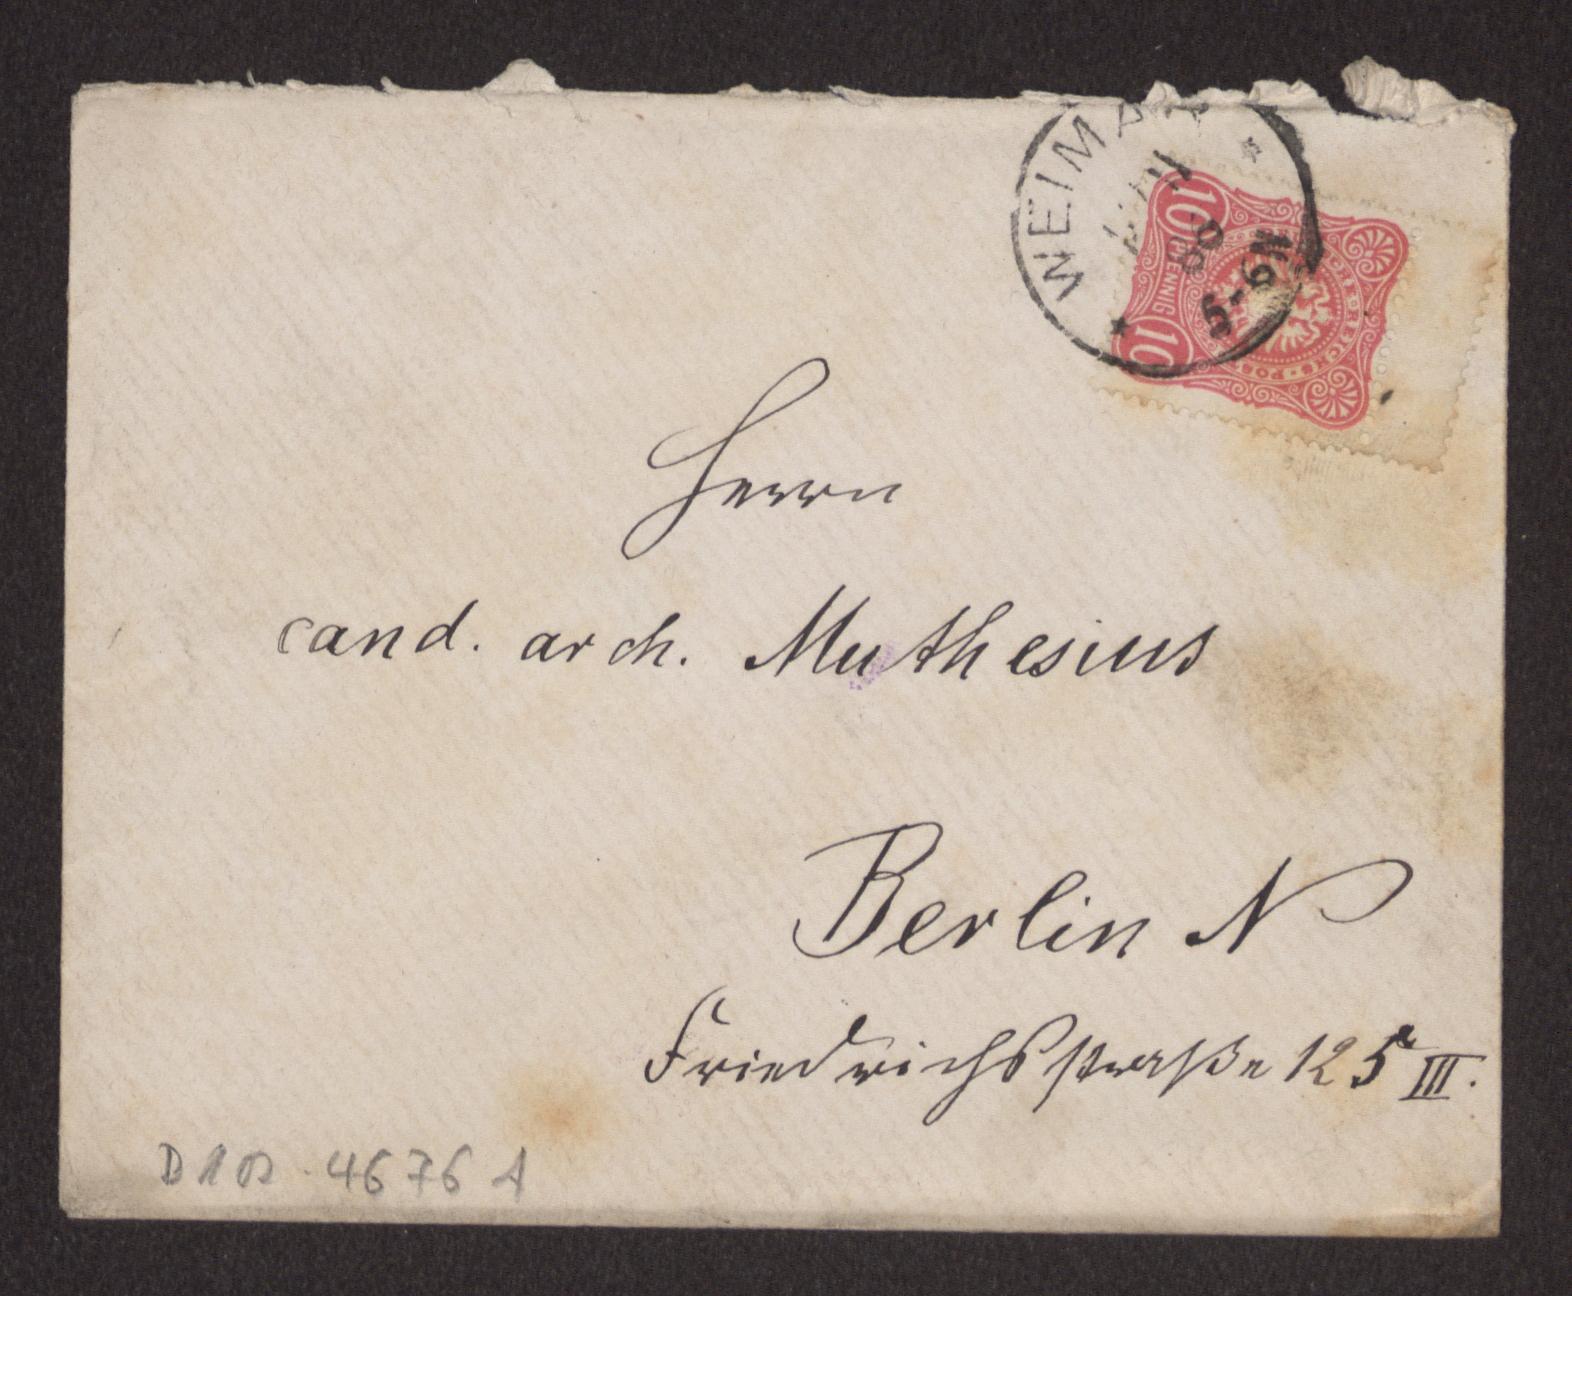 WEIMAR
88
5-6N
10
PFENNIG
10
REICHS-POST
Herrn
cand. arch. Muthesius
Berlin N
Friedrichsstraße 125 III.
D102-4676 A